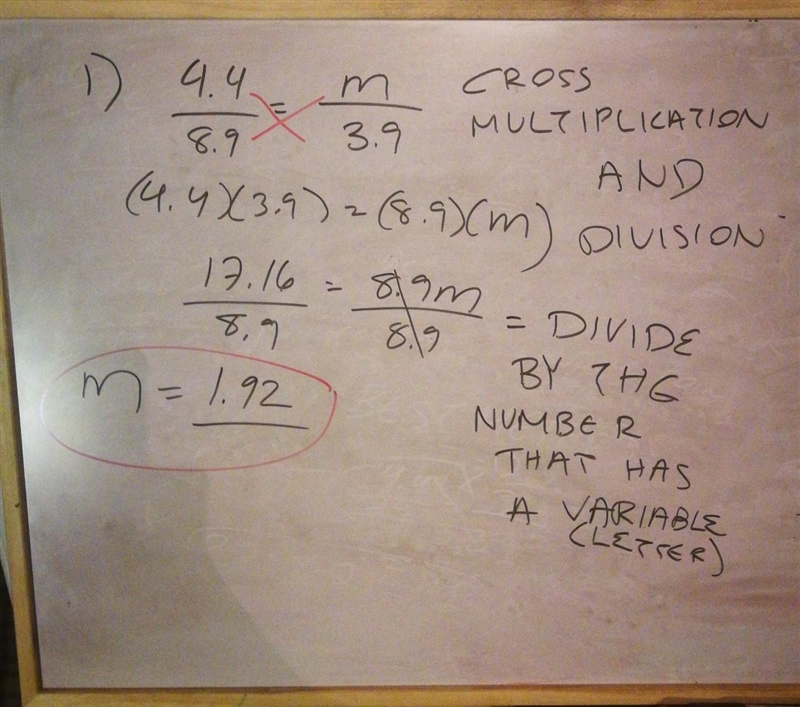 1) 4.4/8.9 = m/3.9
CROSS
MULTIPLICATION
AND
DIVISION
(4.4)(3.9) = (8.9)(m)
17.16/8.9 = 8.9m/8.9 = DIVIDE
BY THE
NUMBER
THAT HAS
A VARIABLE
(LETTER)
m = 1.92